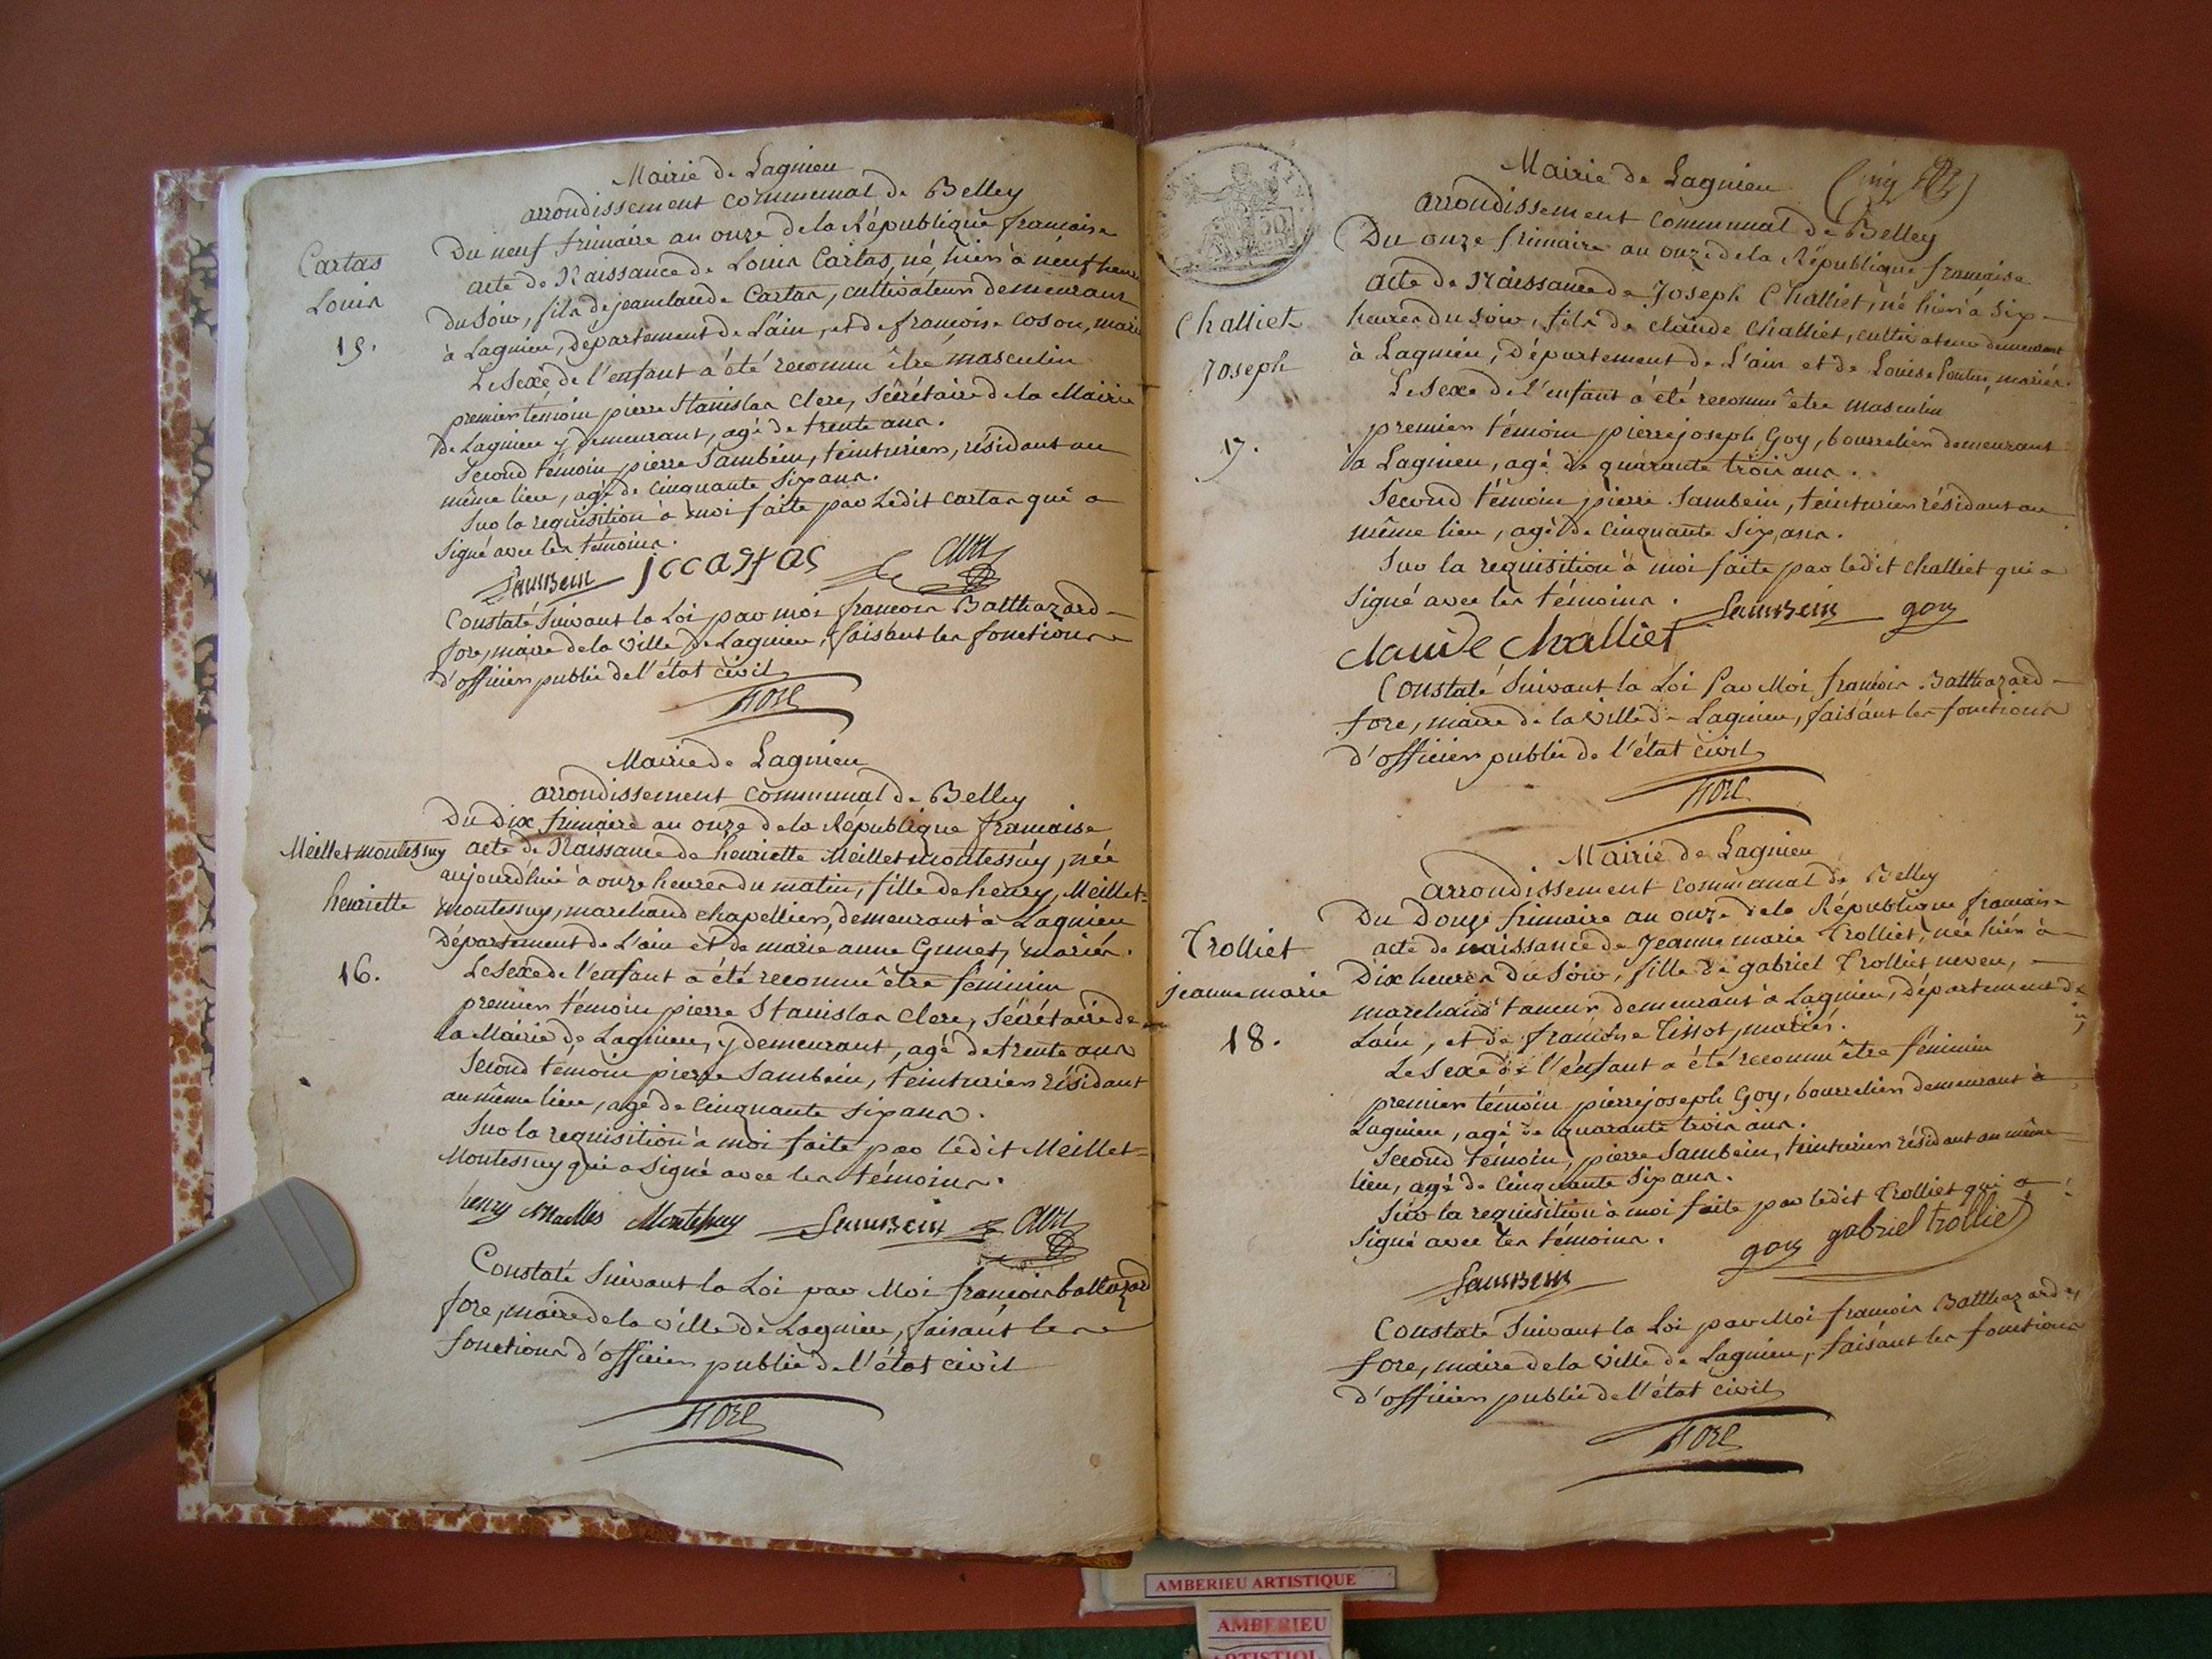 Mairie de Lagnieu
arrondissement communal de Belley
Du neuf frimaire an onze de la République francaise
Cartas
Louis
15.
acte de Naissance de Louis Cartas, né hier à neuf heures
du soir, fils de jeanclaude Cartas, cultivateur demeurant
à Lagnieu, Département de L'ain, et de francoise Coson, mariés
Le Sexe de l'enfant a été reconnu être masculin
premier témoin pierre Stanislas Clerc, Sécrétaire de la Mairie
de Lagnieu y demeurant, agé de trente ans.
Second témoin pierre Sambein, teinturier, résidant au
même lieu, agé de Cinquante Six ans.
Sur la requisition à moi faite par Ledit Cartas qui a
Signé avec les témoins.
Sambein jccartas Clerc
Constaté Suivant la Loi par moi francois Balthazard
fore, maire de la ville de Lagnieu, faisant les fonctions
d'officier public de l'état civil
FORE
Mairie de Lagnieu
arrondissement communal de Belley
Du Dix frimaire an onze de la République francaise
Meilletmontessuy
henriette
16.
acte de Naissance de henriette Meilletmontessuy, née
aujourd'hui à onze heures du matin, fille de henry, Meillet=
montessuy, marchand chapellier, demeurant à Lagnieu
Département de L'ain et de marie anne Gunet, mariés.
Le Sexe de l'enfant a été reconnu être féminin
premier témoin pierre Stanislas Clerc, Sécrétaire de
la Mairie de Lagnieu, y demeurant, agé de trente ans
Second témoin pierre Sambein, teinturier résidant
au même lieu, agé de Cinquante Six ans.
Sur la requisition à moi faite par ledit Meillet=
Montessuy qui a Signé avec les témoins.
henry Montessuy Sambein Clerc
Constaté Suivant la Loi par Moi francois baltazard
fore, maire de la ville de Lagnieu, faisant les
fonctions d'officier public de l'état civil
FORE
Mairie de Lagnieu
arrondissement communal de Belley
Du onze frimaire an onze de la République francaise
Challiet
Joseph
17.
acte de Naissance de Joseph Challiet, né hier à Six
heures du soir, fils de claude Challiet, cultivateur demeurant
à Lagnieu, Département de L'ain et de Louise, mariés.
Le Sexe de l'enfant a été reconnu être masculin
premier témoin pierrejoseph Goy, bourrelier demeurant
à Lagnieu, agé de quarante trois ans.
Second témoin pierre Sambein, teinturier résidant au
même lieu, agé de Cinquante Six ans.
Sur la requisition à moi faite par ledit challiet qui a
Signé avec les témoins. Sambein goy
claude challiet
Constaté Suivant la Loi Par Moi francois Balthazard
fore, maire de la ville de Lagnieu, faisant les fonctions
d'officier public de l'état civil
FORE
Mairie de Lagnieu
arrondissement communal de Belley
Du Douze frimaire an onze de la République francaise
Trolliet
jeanne marie
18.
acte de naissance de Jeanne marie Trolliet, née hier à
Dix heures du Soir, fille de gabriel Trolliet neveu,
marchand taneur demeurant à Lagnieu, Département de
Lain, et de francoise Tissot, mariés.
Le Sexe de l'enfant a été reconnu être féminin
premier témoin pierrejoseph Goy, bourrelier demeurant à
Lagnieu, agé de quarante trois ans.
Second témoin, pierre Sambein, teinturier résidant au même
lieu, agé de Cinquante Six ans.
Sur la requisition à moi faite par ledit Trolliet qui a
Signé avec les témoins. goy gabriel trolliet
Sambein
Constaté Suivant la Loi par Moi francois Balthazard
fore, maire de la ville de Lagnieu, faisant les fonctions
d'officier public de l'état civil
FORE
AMBERIEU ARTISTIQUE
AMBERIEU
ARTISTIQ